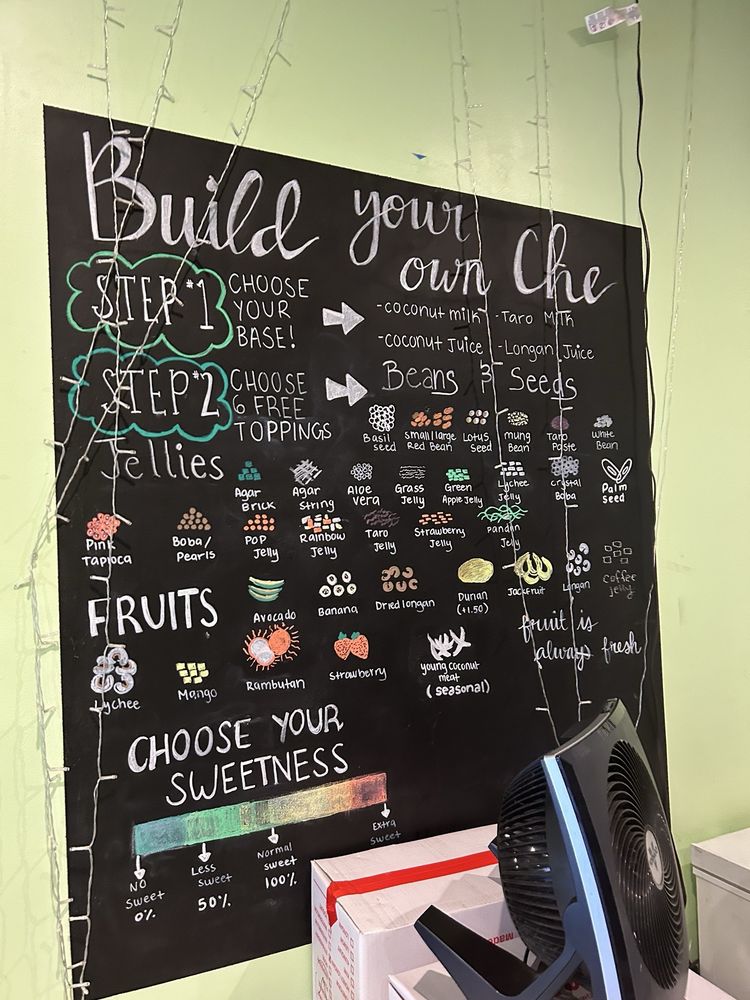 Build your
own Che
STEP #1
CHOOSE
YOUR
BASE!
-coconut milk -Taro Milk
-coconut Juice -Longan Juice
STEP #2
CHOOSE
6 FREE
TOPPINGS
Beans & Seeds
Basil
seed
small/large
Red Bean
Lotus
seed
mung
Bean
Taro
Paste
White
Bean
Jellies
Agar
Brick
Agar
String
Aloe
vera
Grass
Jelly
Green
Apple Jelly
Lychee
Jelly
crystal
Boba
Palm
seed
Pink
Tapioca
Boba/
Pearls
POP
Jelly
Rainbow
Jelly
Taro
Jelly
Strawberry
Jelly
Pandan
Jelly
FRUITS
Avocado
Banana
Dried longan
Durian
(+1.50)
Jackfruit
Longan
coffee
jelly
Lychee
Mango
Rambutan
Strawberry
young coconut
meat
(seasonal)
fruit is
always fresh
CHOOSE YOUR
SWEETNESS
NO
sweet
0%
Less
sweet
50%
Normal
sweet
100%
Extra
sweet
Made